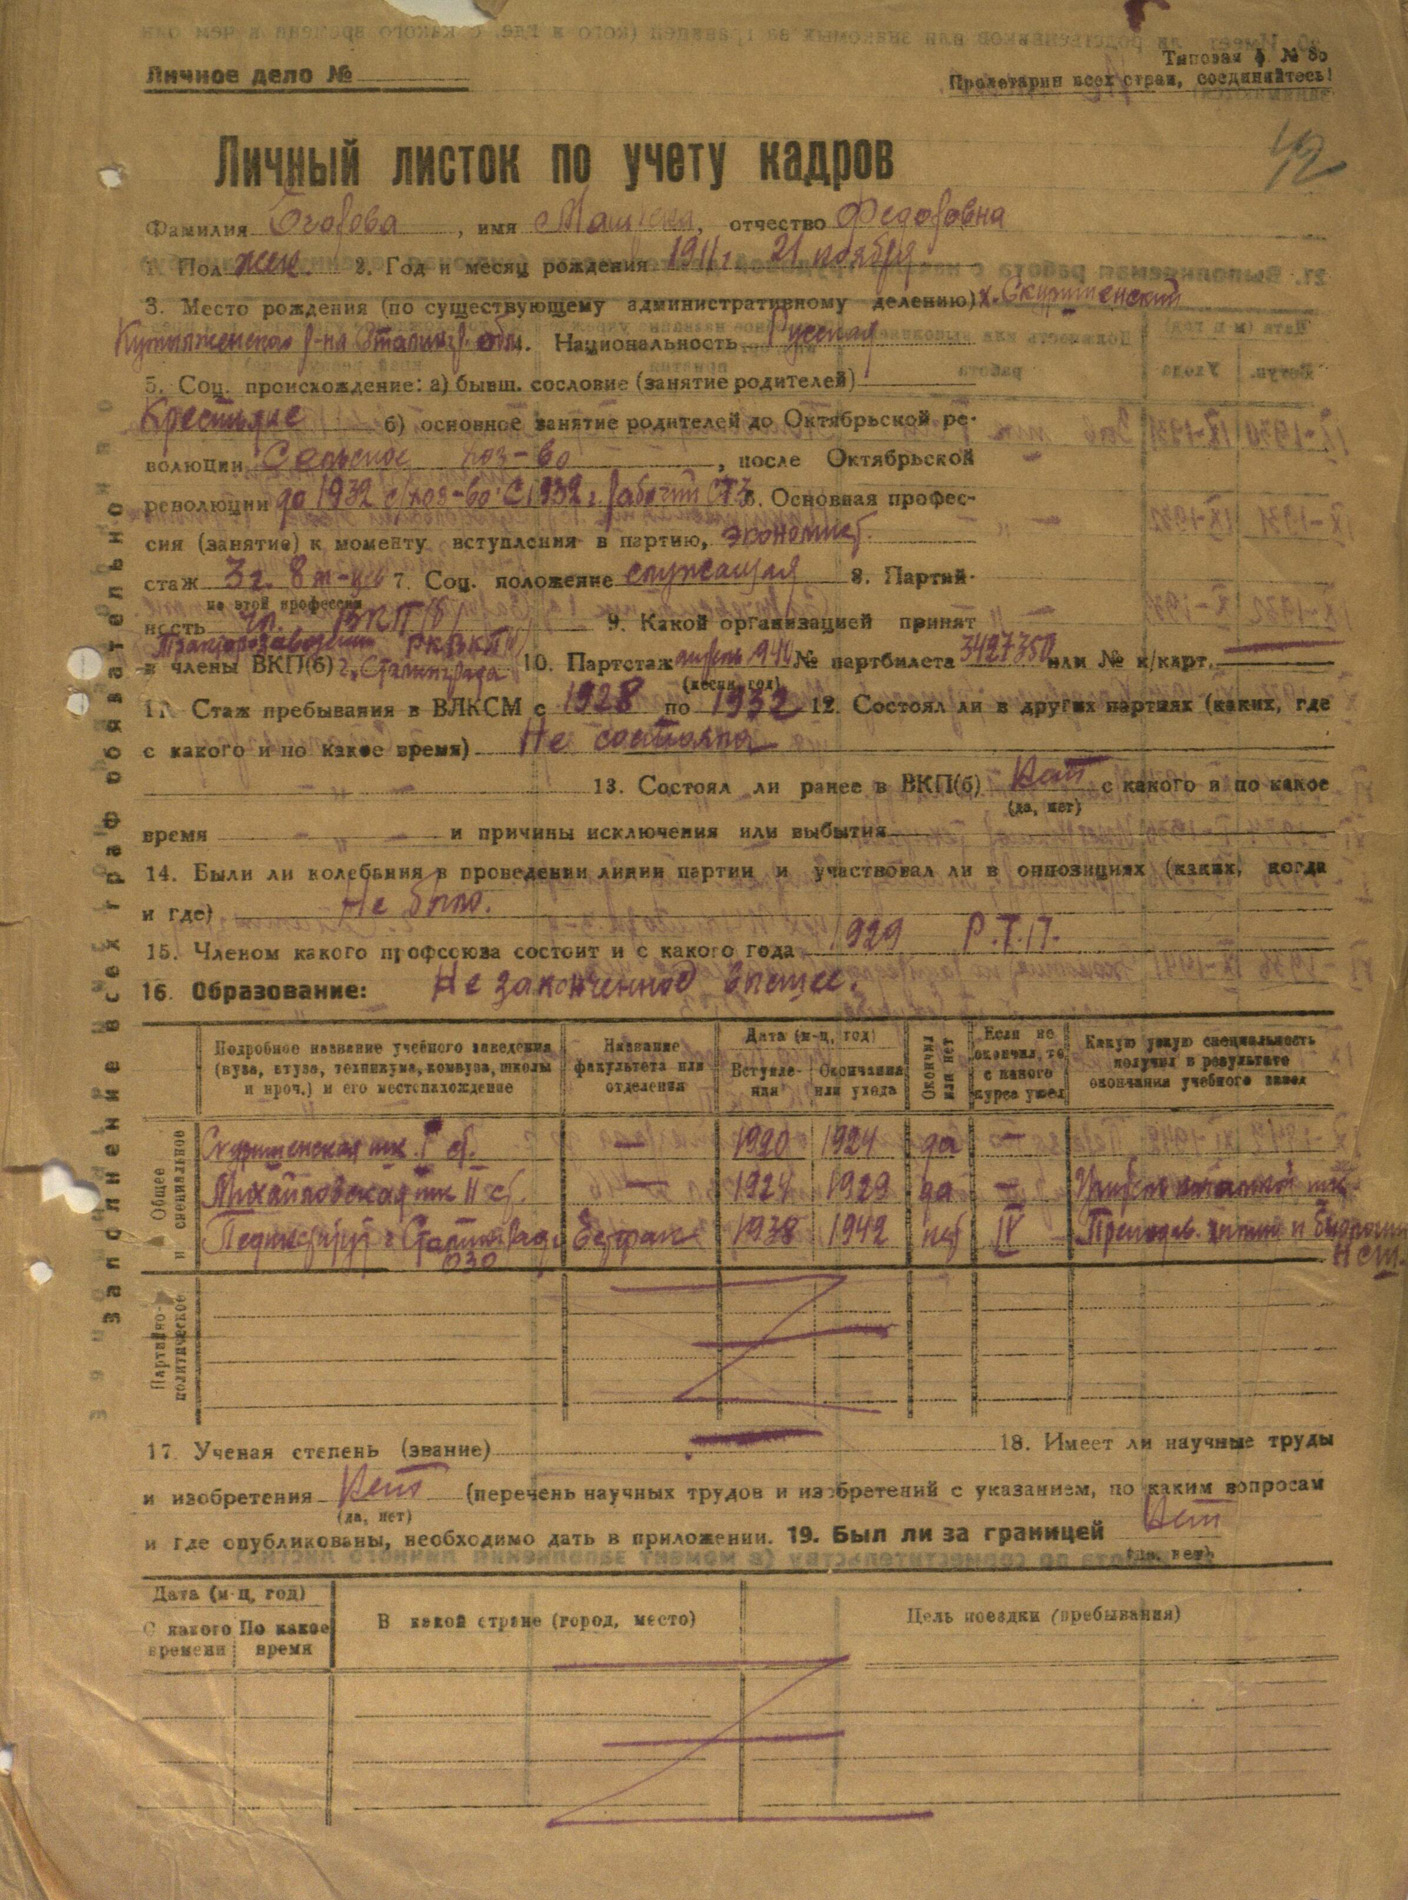 Личное дело №
Типовая ф. №
Пролетарии всех стран, соединяйтесь!
42
Личный листок по учету кадров
Фамилия , имя отчество Федоровна
1. Пол жен. 2. Год и месяц рождения 1911 г. 21 ноября
3. Место рождения (по существующему административному делению) х. Скуришенский
р-на Сталингр. обл. Национальность Русская
5. Соц. происхождение: а) бывш. сословие (занятие родителей)
Крестьяне б) основное занятие родителей до Октябрьской ре-
волюции Сельское хоз-во , после Октябрьской
революции до 1932 с/хоз-во. С 1932 г. рабочий СТЗ 6. Основная профес-
сия (занятие) к моменту вступления в партию, экономист.
стаж 3 г. 8 м-цев 7. Соц. положение служащая 8. Партий-
по этой профессии
ность чл. ВКП(б) 9. Какой организацией принят
Тракторозаводским РК ВКП(б)
в члены ВКП(б) г. Сталинграда 10. Партстаж апрель 940 № партбилета 3427350 или № к/карт.
(месяц, год)
11. Стаж пребывания в ВЛКСМ с 1928 по 1932 12. Состоял ли в других партиях (каких, где
с какого и по какое время) Не состояла
13. Состоял ли ранее в ВКП(б) Нет с какого и по какое
(да, нет)
время и причины исключения или выбытия
14. Были ли колебания в проведении линии партии и участвовал ли в оппозициях (каких, когда
и где) Не было.
15. Членом какого профсоюза состоит и с какого года 1929
16. Образование: Не законченное высшее.
Подробное название учебного заведения
(вуза, втуза, техникума, комвуза, школы
и проч.) и его местонахождение
Название
факультета или
отделения
Дата (м-ц, год)
Вступле-
ния
Окончания
или ухода
Окончил
или нет
Если не
окончил, то
с какого
курса ушел
Какую узкую специальность
получил в результате
окончания учебного завед
Общее
и специальное
Скуришенская шк. I ст. — 1920 1924 да —
Михайловская шк II ст. — 1924 1929 да —
Пединститут г. Сталинград 1938 1942 нет IV Преподав. химии и
ОЗО
НСШ.
Партийно-
политическое
17. Ученая степень (звание) 18. Имеет ли научные труды
и изобретения Нет (перечень научных трудов и изобретений с указанием, по каким вопросам
(да, нет)
и где опубликованы, необходимо дать в приложении. 19. Был ли за границей Нет
(да, нет)
Дата (м-ц, год)
С какого
времени
По какое
время
В какой стране (город, место)
Цель поездки (пребывания)
Заполнение всех граф обязательно